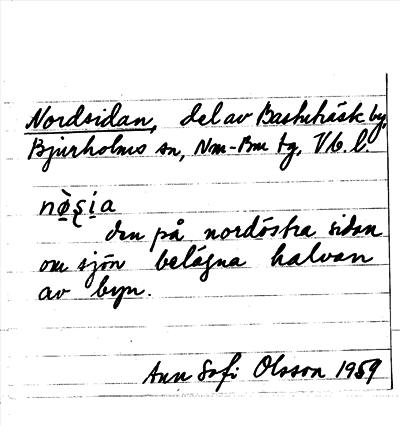 Nordsidan, del av Bastuträsk by,
Bjurholms sn, Nm-Bm tg, Vb. l.
nø̀ʂi̱a
den på nordöstra sidan
om sjön belägna halvan
av byn.
Ann Sofi Olsson 1959